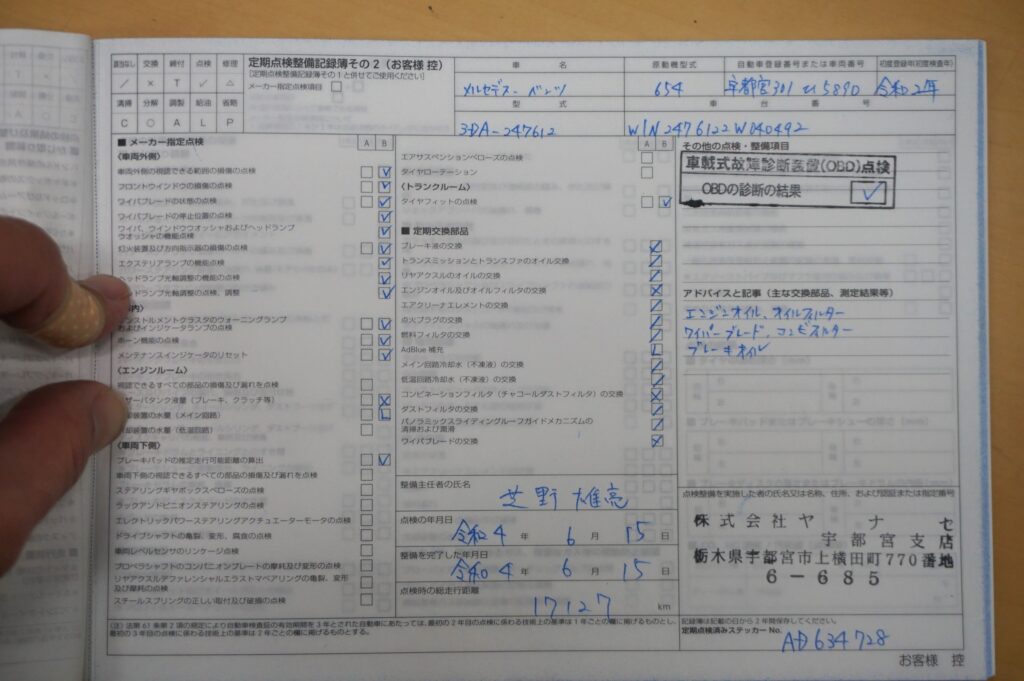 該当なし 交換 締付 点検 修理
／ × T ✓ △
清掃 分解 調整 給油 省略
C ○ A L P
定期点検整備記録簿その2(お客様 控)
[定期点検整備記録簿その1と併せてご使用ください]
メーカー指定点検項目
車名 原動機型式 自動車登録番号または車両番号 初度登録年(初度検査年)
メルセデス-ベンツ 654 宇都宮 301 5890 令和2年
型式 車台番号
3DA-247612 W1N2476122W040492
■ メーカー指定点検 A B
〈車両外側〉
車両外側の視認できる範囲の損傷の点検
フロントウインドウの損傷の点検
ワイパブレードの状態の点検
ワイパブレードの停止位置の点検
ワイパ、ウインドウウオッシャおよびヘッドランプ
ウオッシャの機能点検
灯火装置及び方向指示器の損傷の点検
エクステリアランプの機能点検
ヘッドランプ光軸調整の機能点検
ドランプ光軸調整の点検、調整
内〉
ンストルメントクラスタのウォーニングランプ
およびインジケータランプの点検
ホーン機能の点検
メンテナンスインジケータのリセット
〈エンジンルーム〉
視認できるすべての部品の損傷及び漏れを点検
ザーバタンク液量(ブレーキ、クラッチ等)
却装置の水量(メイン回路)
却装置の水量(低温回路)
〈車両下側〉
ブレーキパッドの推定走行可能距離の算出
車両下側の視認できるすべての部品の損傷及び漏れを点検
ステアリングギヤボックスベローズの点検
ラックアンドピニオンステアリングの点検
エレクトリックパワーステアリングアクチュエーターモータの点検
ドライブシャフトの亀裂、変形、腐食の点検
車両レベルセンサのリンケージ点検
プロペラシャフトのコンパニオンプレートの摩耗及び変形の点検
リヤアクスルデファレンシャルエラストマベアリングの亀裂、変形
及び摩耗の点検
スチールスプリングの正しい取付及び破損の点検
A B
エアサスペンションベローズの点検
タイヤローテーション
〈トランクルーム〉
タイヤフィットの点検
■ 定期交換部品
ブレーキ液の交換
トランスミッションとトランスファのオイル交換
リヤアクスルのオイルの交換
エンジンオイル及びオイルフィルタの交換
エアクリーナエレメントの交換
点火プラグの交換
燃料フィルタの交換
AdBlue 補充
メイン回路冷却水(不凍液)の交換
低温回路冷却水(不凍液)の交換
コンビネーションフィルタ(チャコールダストフィルタ)の交換
ダストフィルタの交換
パノラミックスライディングルーフガイドメカニズムの
清掃および潤滑
ワイパブレードの交換
整備主任者の氏名
芝野 雄亮
点検の年月日
令和4 年 6 月 15 日
整備を完了した年月日
令和4 年 6 月 15 日
点検時の総走行距離
17127 km
その他の点検・整備項目
車載式故障診断装置(OBD)点検
OBDの診断の結果 ✓
アドバイスと記事(主な交換部品、測定結果等)
エンジンオイル、オイルフィルター
ワイパーブレード、コンビフィルター
ブレーキオイル
点検整備を実施した者の氏名又は名称、住所、および認証または指定番号
株式会社ヤナセ
宇都宮支店
栃木県宇都宮市上横田町770番地
6-685
(注)法第61条第2項の規定により自動車検査証の有効期間を3年とされた自動車にあたっては、最初の2年目の点検に係わる技術上の基準は1年ごとの欄に掲げるものとし、
最初の3年目の点検に係わる技術上の基準は2年ごとの欄に掲げるものとする。
記録簿は記載の日から2年間保存してください。
定期点検済みステッカー No. AD634728
お客様 控